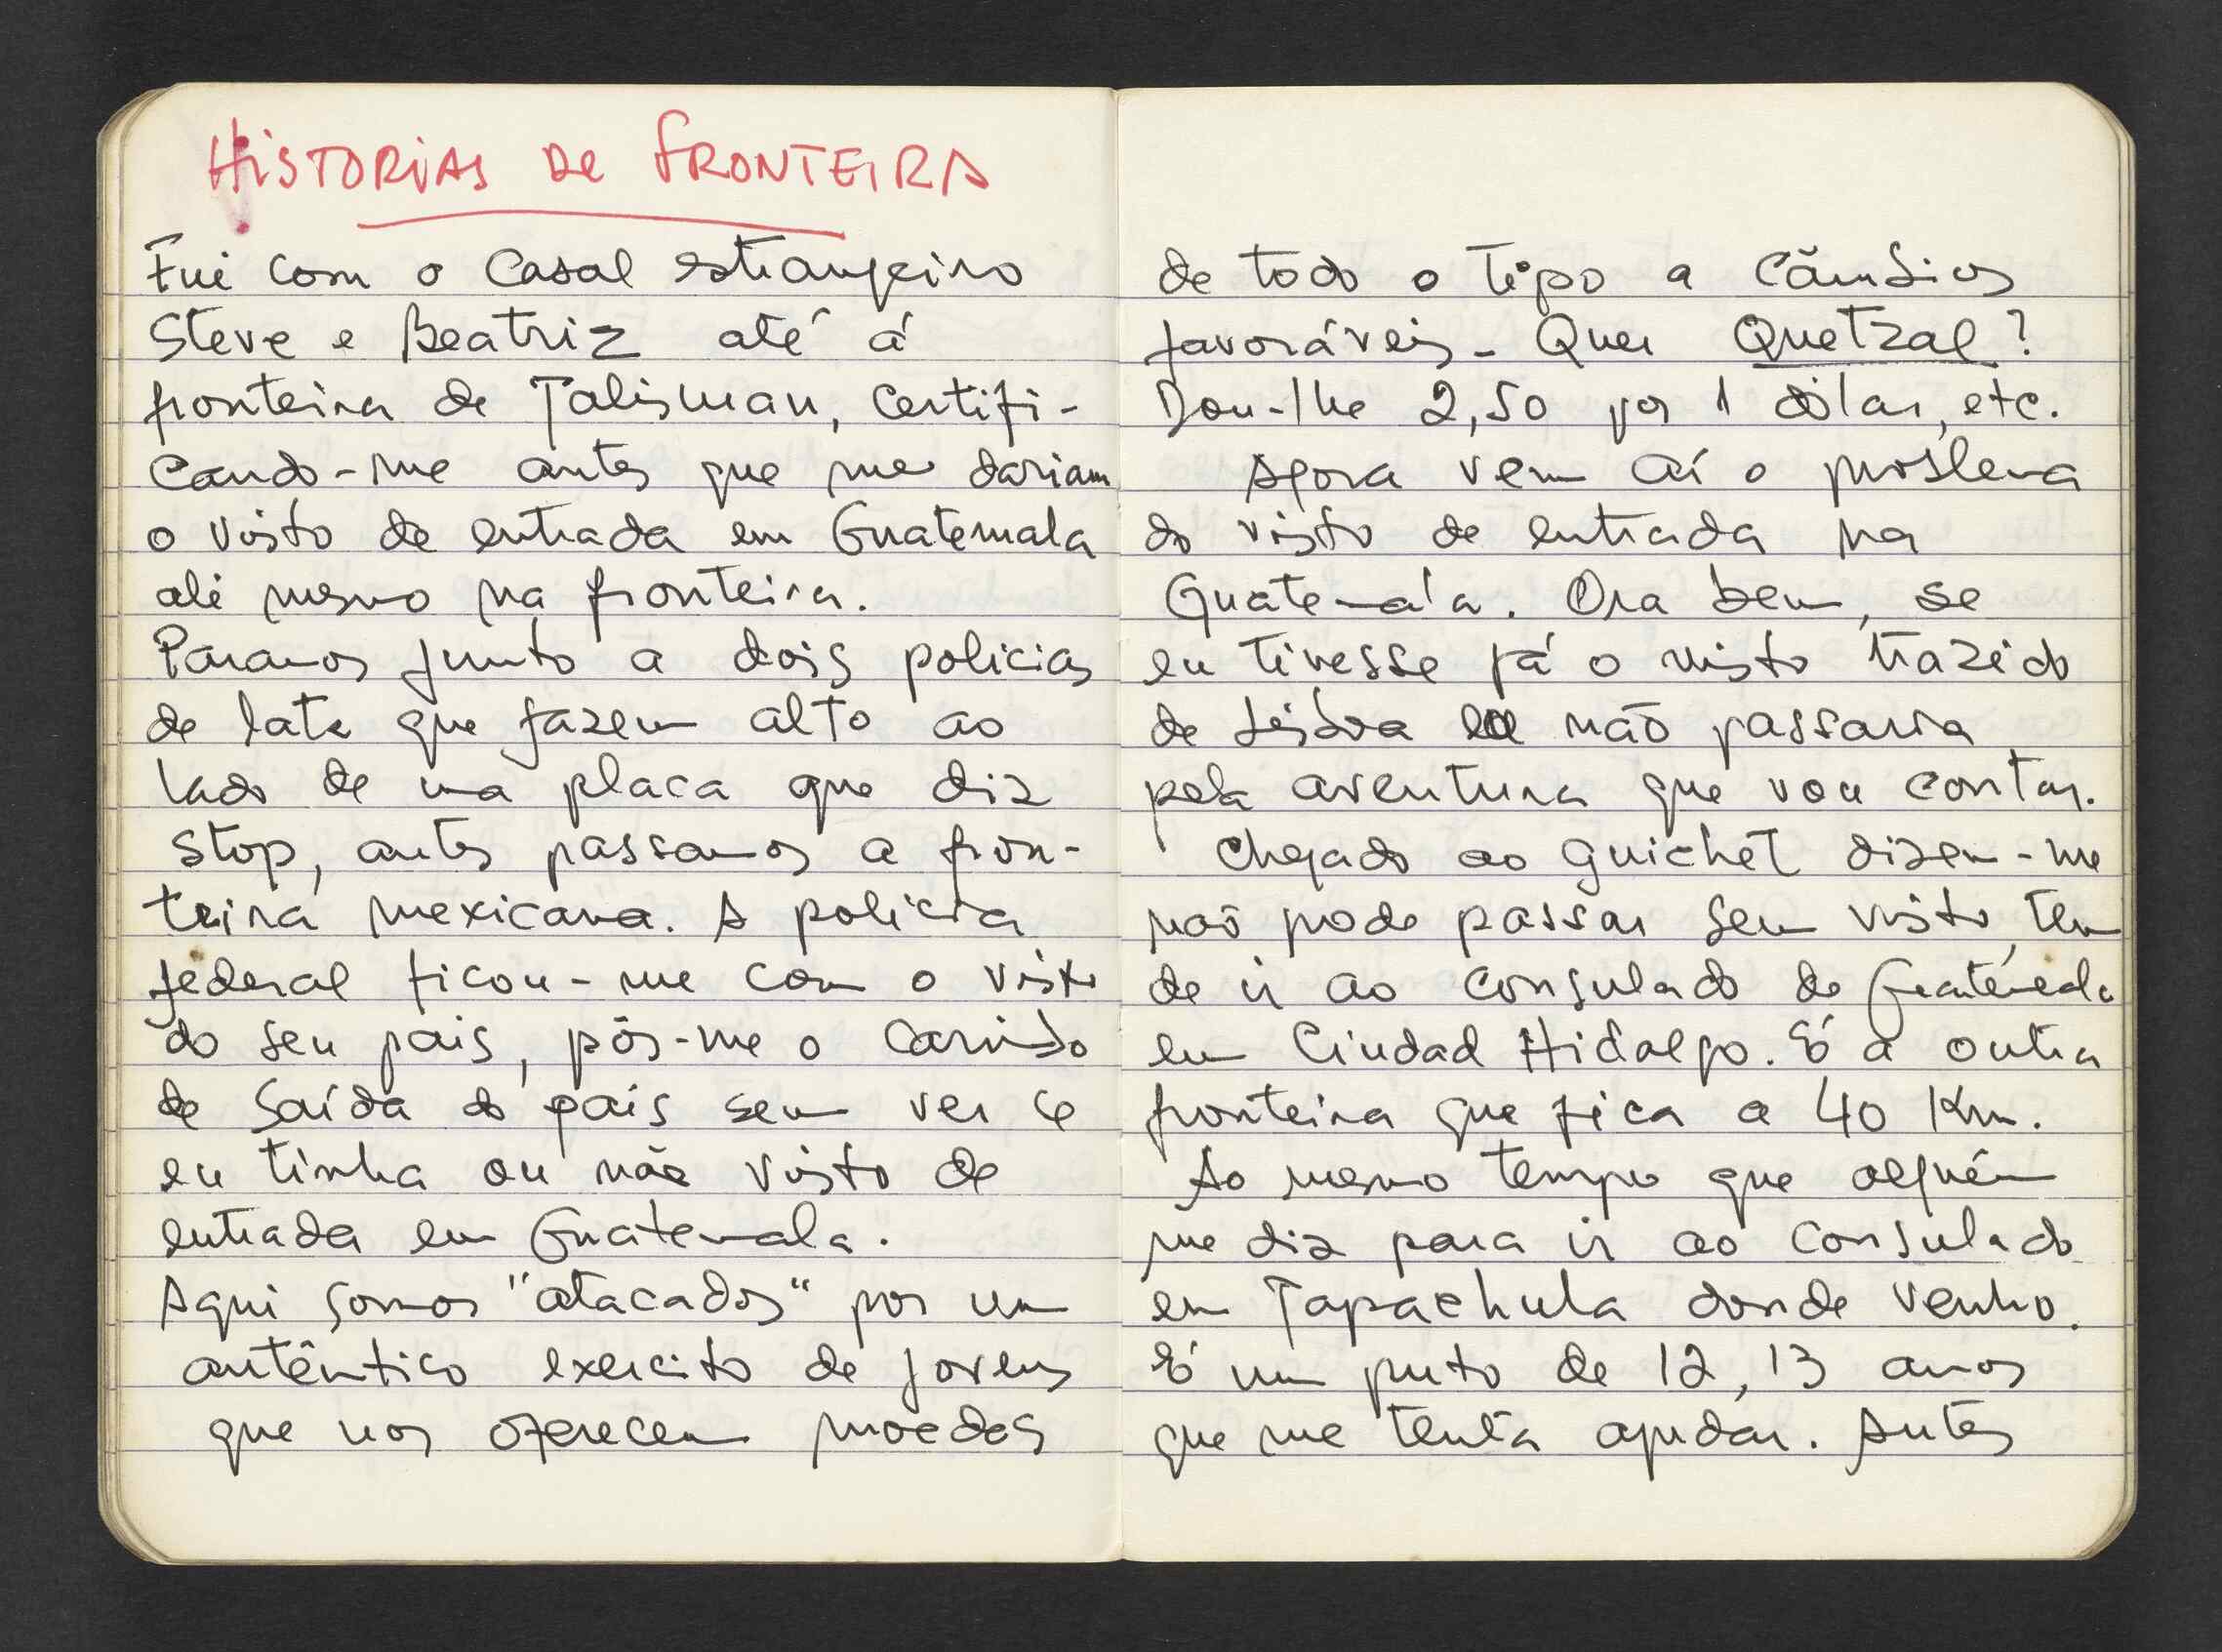 HISTORIAS DE FRONTEIRA
Fui com o casal estrangeiro
Steve e Beatriz até á
fronteira de Talisman, certifi-
cando-me antes que me dariam
o visto de entrada em Guatemala
ali mesmo na fronteira.
Paramos junto a dois policias
de lata que fazem alto ao
lado de uma placa que diz
stop, antes passamos a fron-
teira mexicana. A policia
federal ficou-me com o visto
do seu pais, pôs-me o carimbo
de saída do país sem ver se
eu tinha ou não visto de
entrada em Guatemala.
Aqui somos "atacados" por um
autêntico exercito de jovens
que nos oferecem moedas
de todo o tipo a câmbios
favoráveis - Quer Quetzal?
Dou-lhe 2,50 por 1 dólar, etc.
Agora vem aí o problema
do visto de entrada na
Guatemala. Ora bem, se
eu tivesse já o visto trazido
de Lisboa não passaria
pela aventura que vou contar.
Chegado ao guichet dizem-me
não pode passar sem visto, tem
de ir ao consulado de Guatemala
em Ciudad Hidalgo. É a outra
fronteira que fica a 40 Km.
Ao mesmo tempo que alguém
me diz para ir ao consulado
em Tapachula donde venho.
É um puto de 12, 13 anos
que me tenta ajudar. Antes